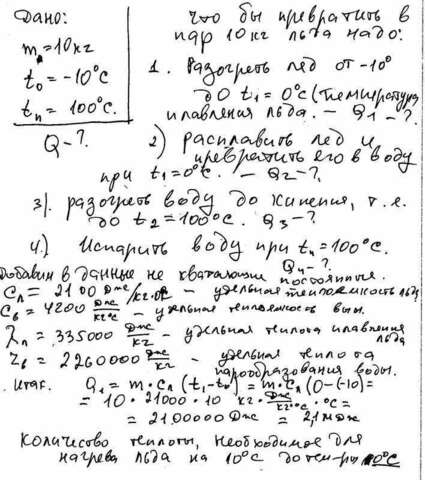 Дано:
m л = 10 кг
t₀ = -10°С
tп = 100°С.
Q - ?
Что бы превратить в
пар 10 кг льда надо:
1. Разогреть лед от -10°
до t₁ = 0°С (температура
плавления льда. - Q₁ - ?
2) расплавить лед и
превратить его в воду
при t₁ = 0°С. - Q₂ - ?
3). разогреть воду до кипения, т.е.
до t₂ = 100°С. Q₃ - ?
4.) Испарить воду при tп = 100°С.
Q₄ - ?
Добавим в данные не хватающии постоянные.
Cл = 2100 Дж/кг·°С - удельная теплоемкость льда
Cв = 4200 Дж/кг°С - удельная теплоемкость
λл = 335000 Дж/кг - удельная теплота плавления
льда
Zв = 2260000 Дж/кг - удельная теплота
парообразования воды.
Итак. Q₁ = m·Cл (t₁-t₀) = m·Cл (0-(-10) =
= 10 · 21000 · 10 кг · Дж/кг·°С · °С =
= 2100000 Дж = 2,1 мДж
Количесво теплоты, необходимое для
нагрева льда на 10°С до тем-ры 0°С